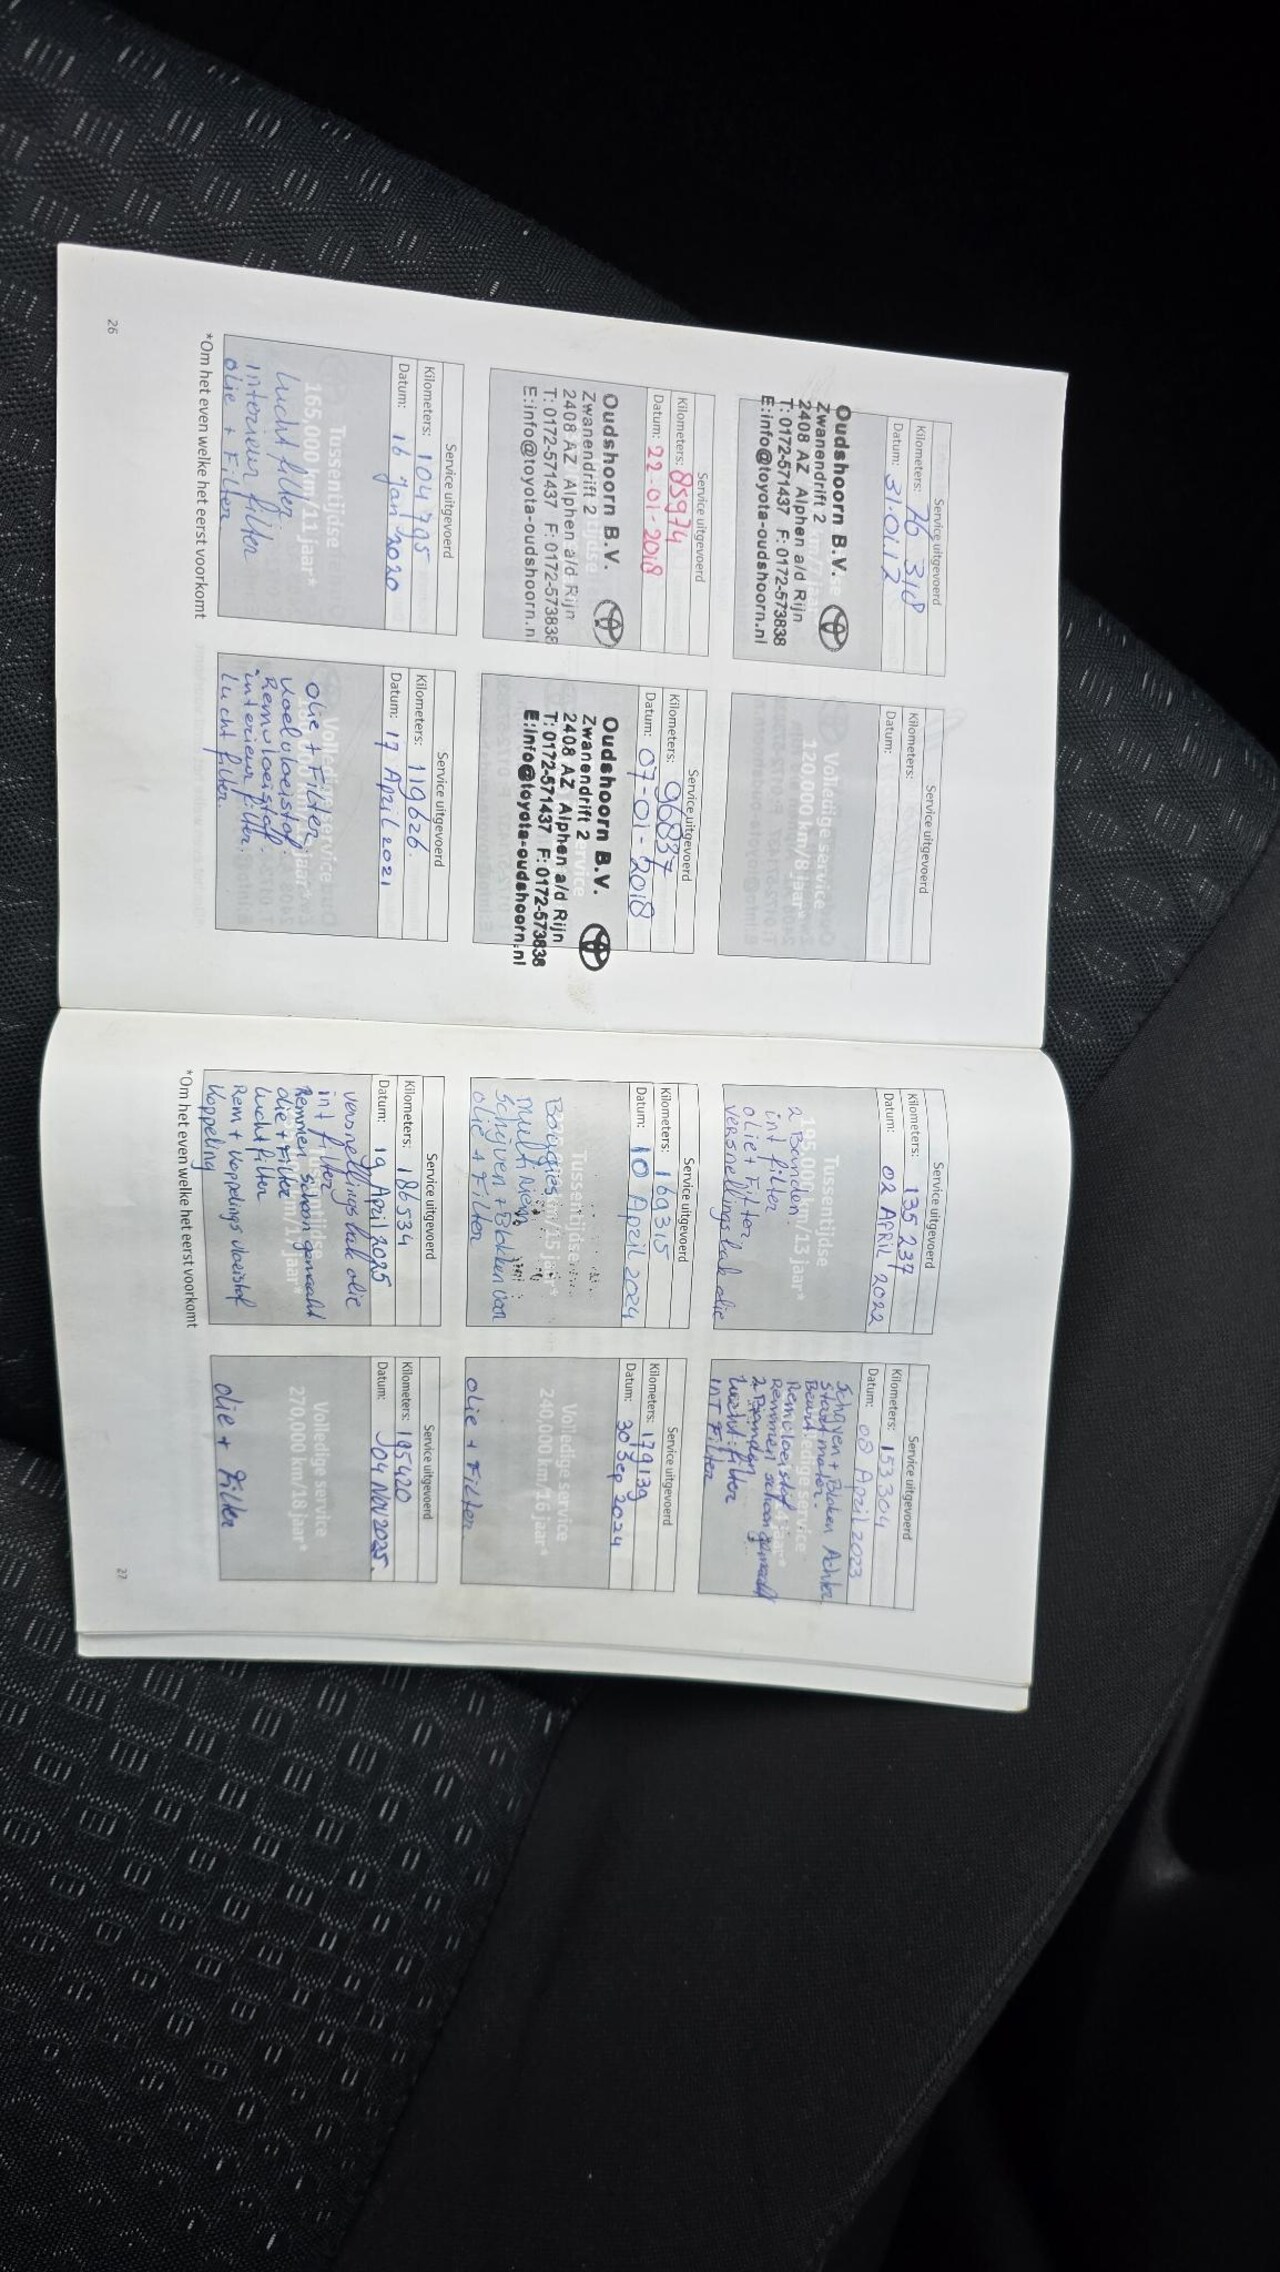 Service uitgevoerd
Kilometers: 76 318
Datum: 31.01.17
Oudshoorn B.V.
Zwanendrift 2
2408 AZ Alphen a/d Rijn
T: 0172-571437 F: 0172-573838
E:info@toyota-oudshoorn.nl
Service uitgevoerd
Kilometers:
Datum:
Volledige service
120.000 km/8 jaar*
Service uitgevoerd
Kilometers: 85974
Datum: 22-01-2018
Oudshoorn B.V.
Zwanendrift 2
2408 AZ Alphen a/d Rijn
T: 0172-571437 F: 0172-573838
E:info@toyota-oudshoorn.nl
Service uitgevoerd
Kilometers: 96837
Datum: 07-01-2018
Oudshoorn B.V.
Zwanendrift 2
2408 AZ Alphen a/d Rijn
T: 0172-571437 F: 0172-573838
E:info@toyota-oudshoorn.nl
Service uitgevoerd
Kilometers: 104795
Datum: 16 Jan 2020
Tussentijdse
165.000 km/11 jaar*
lucht filter
interieur filter
olie + Filter
Service uitgevoerd
Kilometers: 119626.
Datum: 17 April 2021
Volledige service
olie + Filter
Koelvloeistof
Remvloeistof
interieur filter.
Lucht filter
*Om het even welke het eerst voorkomt
26
Service uitgevoerd
Kilometers: 135 237
Datum: 02 APRIL 2022
Tussentijdse
195.000 km/13 jaar*
2 Banden
int filter
olie + Filter
versnellingsbak olie
Service uitgevoerd
Kilometers: 153304
Datum: 08 April 2023
Schijven + Blokken Achter
Startmotor
Remvloeistof
Remmen schoon gemaakt
2 Banden
Lucht filter
INT Filter
Service uitgevoerd
Kilometers: 169315
Datum: 10 April 2024
Tussentijdse
Bougies
Multi Riem
Schijven + Blokken voor
olie + Filter
Service uitgevoerd
Kilometers: 179139
Datum: 30 Sep 2024
Volledige service
240.000 km/16 jaar*
olie + Filter
Service uitgevoerd
Kilometers: 186534
Datum: 19 April 2025
versnellingsbak olie
int filter
Remmen schoon gemaakt
olie + Filter
lucht filter
Rem + koppelings vloeistof
Koppeling
Service uitgevoerd
Kilometers: 195420
Datum: 04 NOV 2025.
Volledige service
270.000 km/18 jaar*
olie + Filter
*Om het even welke het eerst voorkomt
27